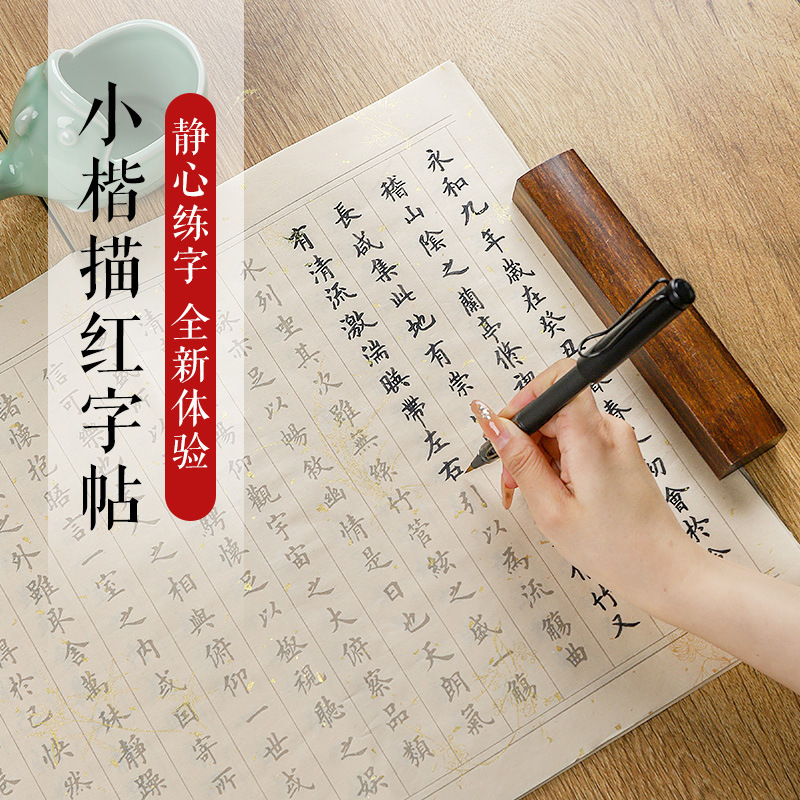 小楷描红字帖
静心练字 全新体验
永和九年歲在癸丑春之初會於會
稽山陰之蘭亭修禊
長咸集此地有崇竹又
有清流激湍暎帶左右引以為流觴曲
水列坐其次雖無絲竹管絃之盛一觴
詠亦足以暢敘幽情是日也天朗氣
清暢仰觀宇宙之大俯察品類
騁懷足以極視聽之娛
信可人之相與俯仰一世或
諸懷抱晤言一室之內或因寄所
之外雖取舍萬殊靜躁
得於己快然